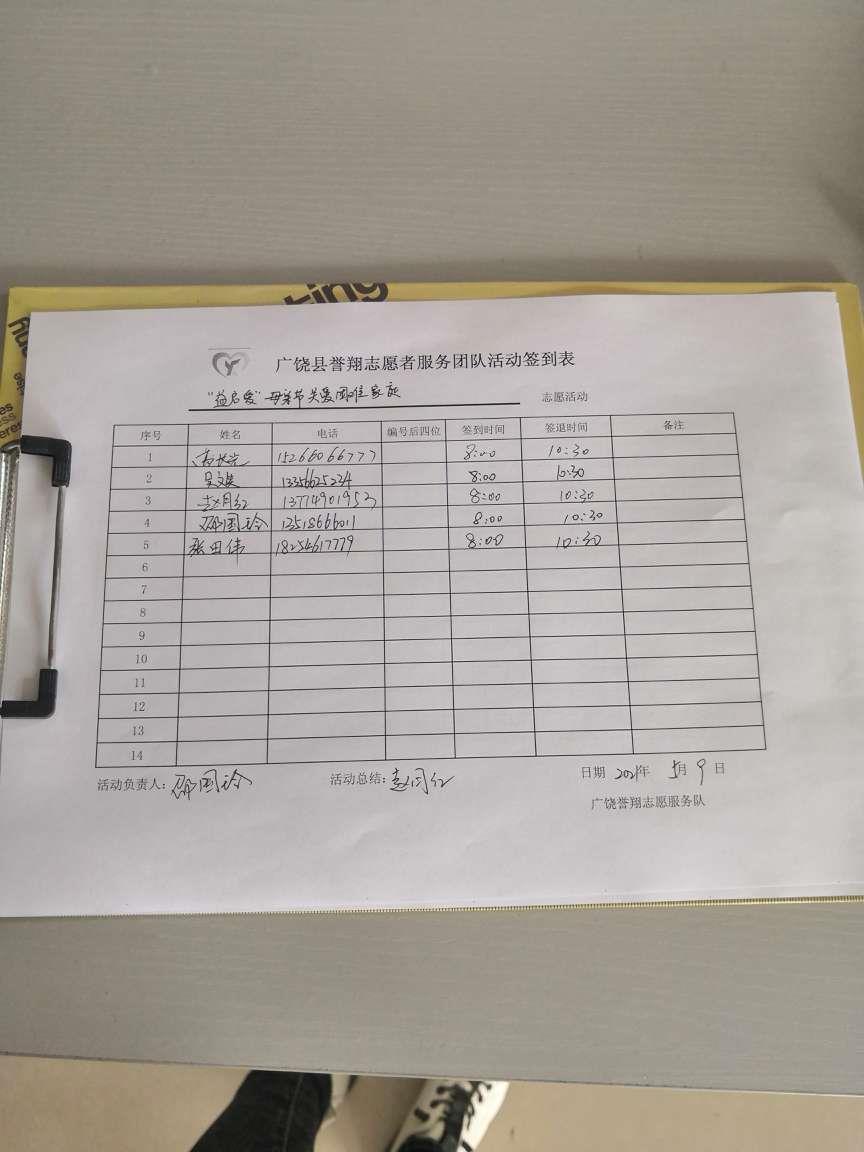 ting
广饶县誉翔志愿者服务团队活动签到表
"益启爱"母亲节关爱困难家庭 志愿活动
序号 姓名 电话 编号后四位 签到时间 签退时间 备注
1 15266066777 8:00 10:30
2 13356625234 8:00 10:30
3 赵月红 13714901952 8:00 10:30
4 邵国玲 13518666011 8:00 10:30
5 张田伟 18254617779 8:00 10:30
6
7
8
9
10
11
12
13
14
活动负责人:邵国玲 活动总结:赵月红 日期 2021年 5月 9 日
广饶誉翔志愿服务队